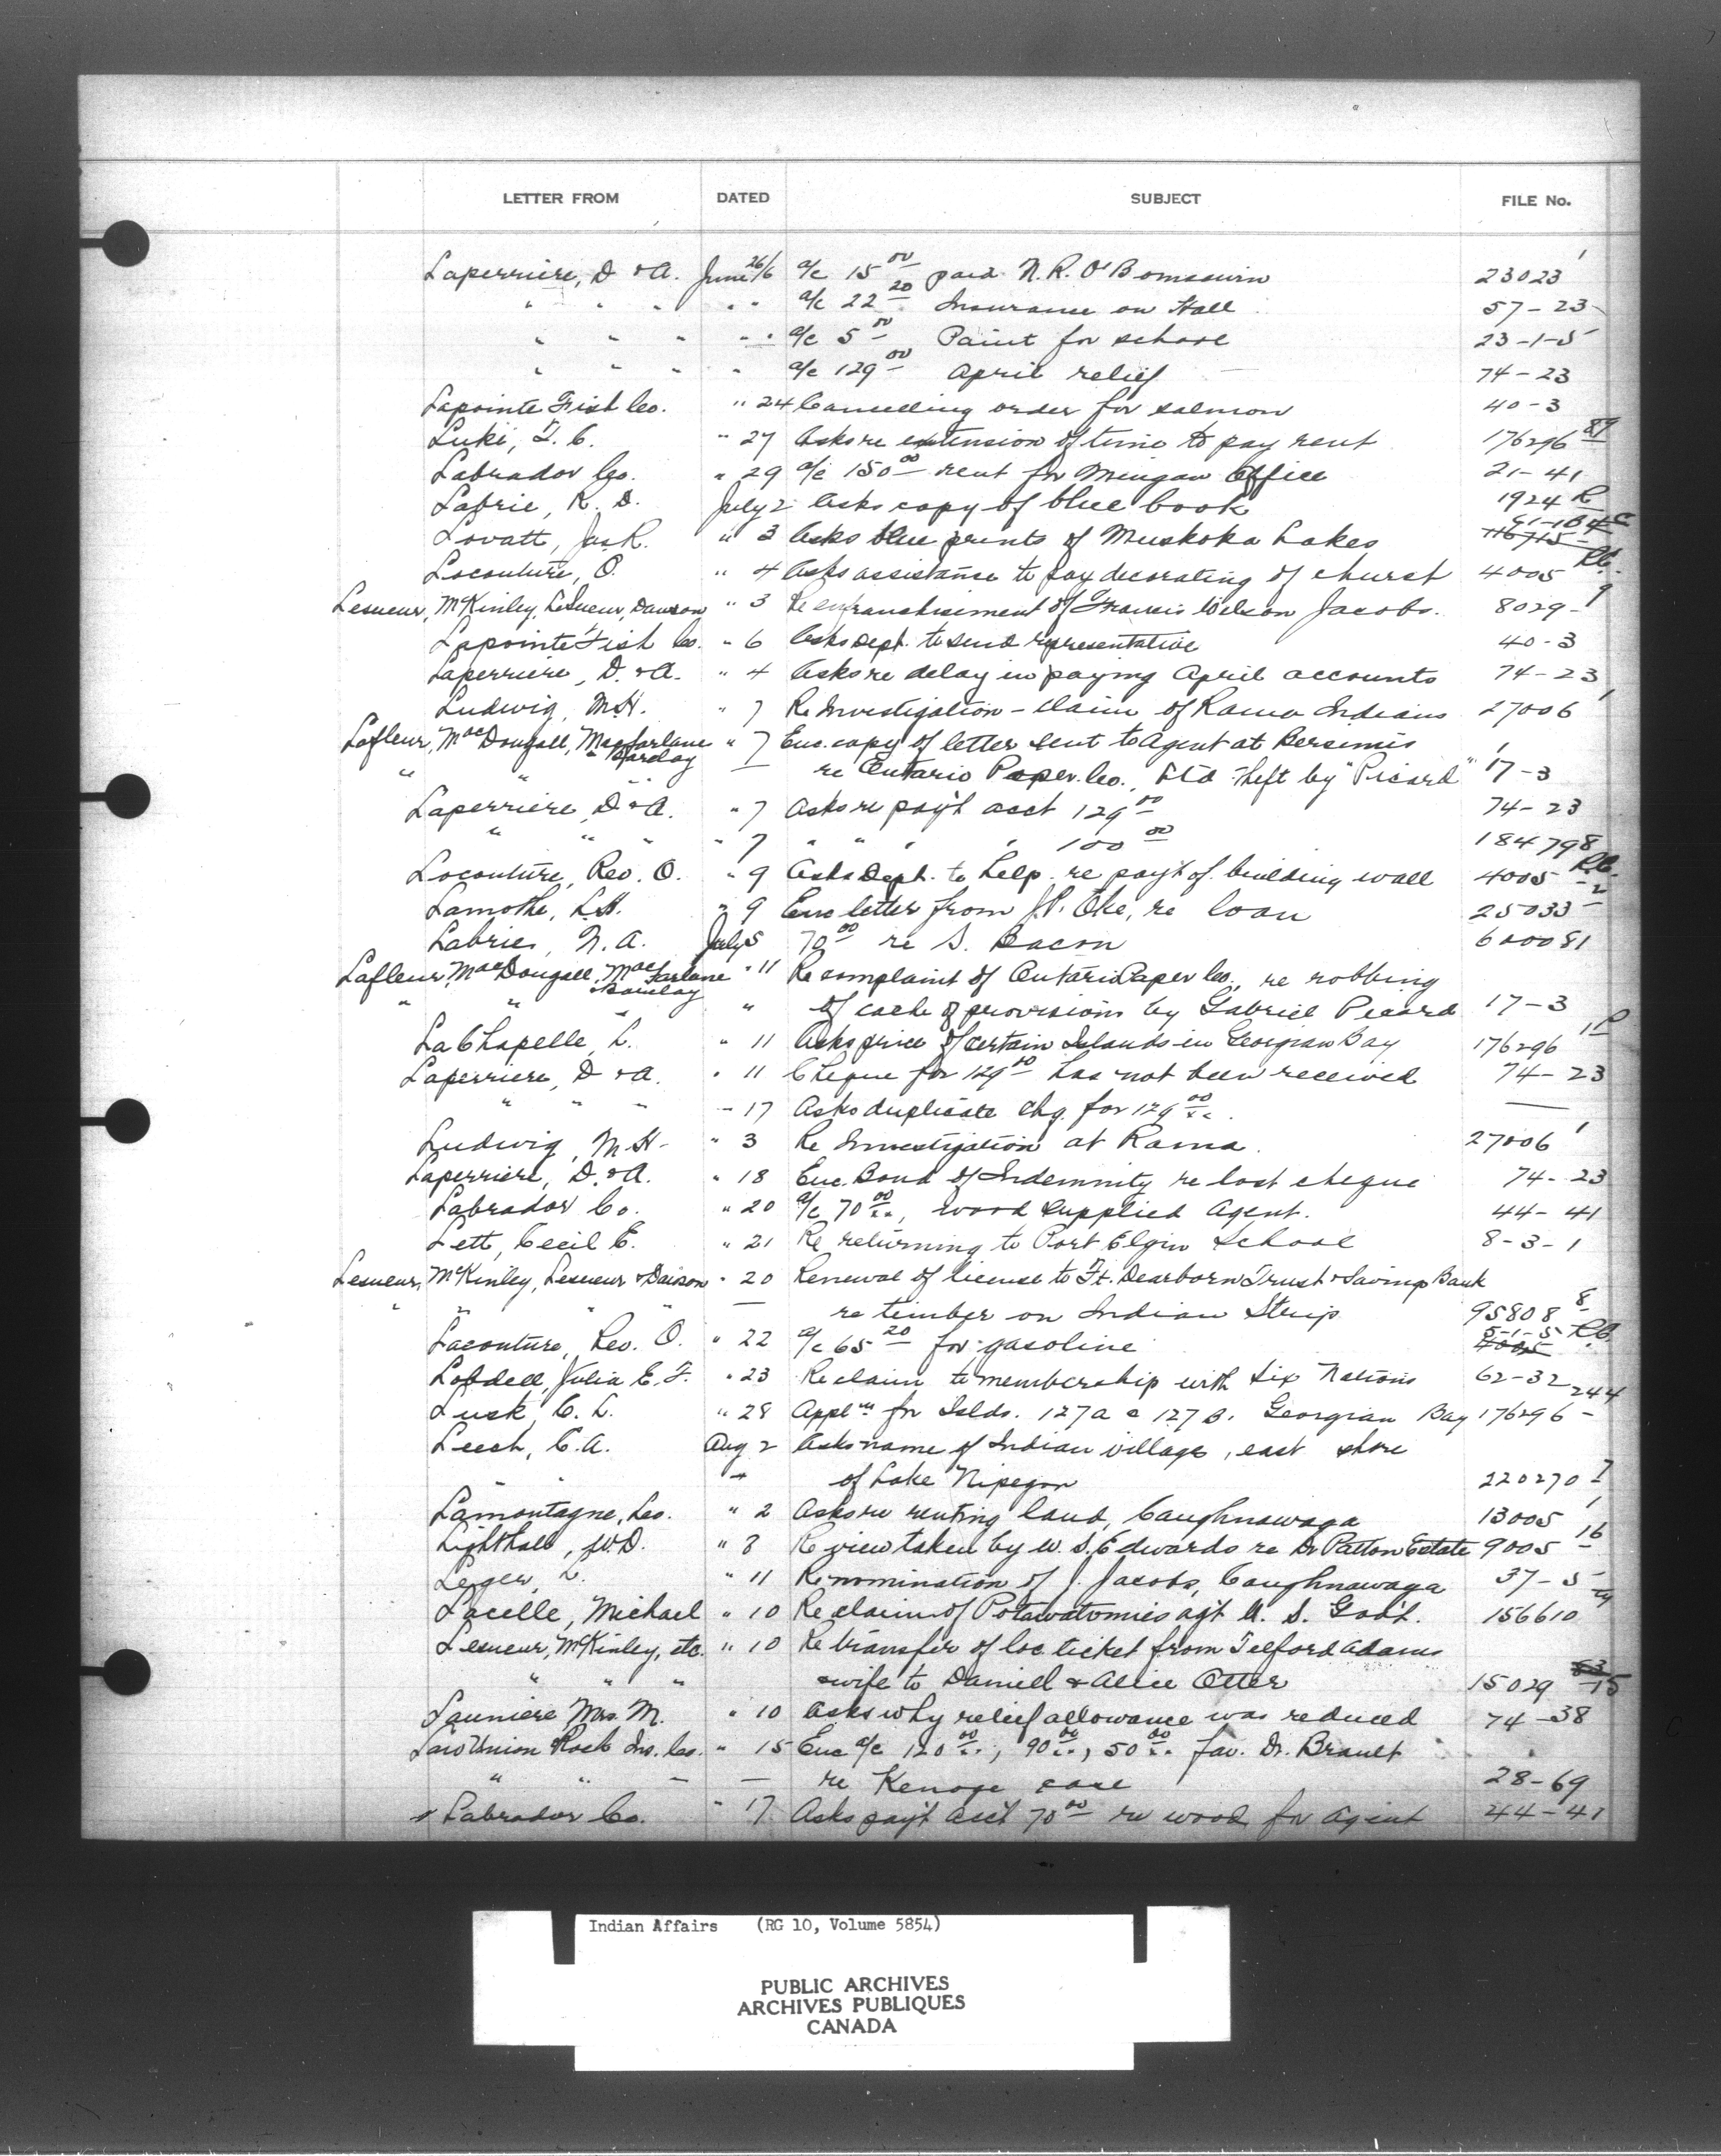 LETTER FROM DATED SUBJECT FILE No.
Laperriere, D & A. June 26/6 a/c 15 00 paid N. R. O'Bomsawin 23023 1
" " " " " a/c 22 20 Insurance on Hall 57-23
" " " " " a/c 5 00 Paint for school 23-1-5
" " " " a/c 129 00 April relief 74-23
Lapointe Fish Co. " 24 Cancelling order for salmon 40-3
Luke, F. C. " 27 Asks re extension of time to pay rent 176296 89
Labrador Co. " 29 a/c 150 00 rent for Mingan Office 21-41
Labrie, R. D. July 2 Asks copy of blue book 1924 R
Lovatt, Jas R. " 3 Asks blue prints of Muskoka Lakes
Locouture, O. " 4 Asks assistance to pay decorating of church 4005 RC.
Lesueur, McKinley, LeSueur, Dawson " 3 Re enfranchisement of Francis Wilson Jacobs. 8029-9
Lapointe Fish Co. " 6 Asks Dept. to send representative 40-3
Laperriere, D. & A. " 4 Asks re delay in paying April accounts 74-23
Ludwig, M.H. " 7 Re Investigation - claim of Rama Indians 27006 1
Lafleur, MacDougall, Macfarlane & Barclay " 7 Enc. copy of letter sent to Agent at Bersimis
" " " — re Ontario Paper Co., Ltd Theft by "Picard" 17-3
Laperriere, D & A. " 7 Asks re pay't acct 129 00 74-23
" " " " 7 " " " " 100 00 184798
Locouture, Rev. O. " 9 Asks Dept. to help re pay't of building wall 4005 RC.
Lamothe, L.H. " 9 Enc letter from J.P. Oke, re loan 25033 - 2
Labrie, N. A. July 5 70 00 re S. Bacon 600081
Lafleur, MacDougall, MacFarlane & Barclay " 11 Re complaint of Ontario Paper Co., re robbing
" " " " of cache of provisions by Gabriel Picard 17-3
LaChapelle, L. " 11 Asks price of certain Islands in Georgian Bay 176296 1P
Laperriere, D & A. " 11 Cheque for 129 00 has not been received 74-23
" " " " 17 Asks duplicate chq. for 129 00. —
Ludwig, M H " 3 Re Investigation at Rama 27006 1
Laperriere, D. & A. " 18 Enc. Bond of Indemnity re lost cheque 74-23
Labrador Co. " 20 a/c 70 00, wood supplied Agent. 44-41
Lett, Cecil E. " 21 Re returning to Port Elgin School 8-3-1
Lesueur, McKinley, Lesueur & Dawson " 20 Renewal of license to Ft. Dearborn Trust & Savings Bank
" " " " — re timber on Indian Strip 95808 8
Lacouture, Rev. O. " 22 a/c 65 20 for gasoline 5-1-5 RC. 4005
Lobdell, Julia E. F. " 23 Re claim to membership with Six Nations 62-32
Lusk, C. L. " 28 Appl'n for Islds. 127A & 127B. Georgian Bay 176296 - 244
Leech, C. A. Aug 2 Asks name of Indian village, east shore
" " " of Lake Nipegon 220270 7
Lamontagne, Leo. " 2 Asks re renting land, Caughnawaga 13005 1
Lighthall, W.D. " 8 Re view taken by W. S. Edwards re Dr Patton Estate 9005 16
Leger, L. " 11 Re nomination of J. Jacobs, Caughnawaga 37-5
Lacelle, Michael " 10 Re claim of Potawatomies agt U. S. Gov't. 156610
Lesueur, McKinley, etc. " 10 Re transfer of loc. ticket from Telford Adams
" " " & wife to Daniell & Alice Otter 15029 63 15
Launiere Mrs. M. " 10 Asks why relief allowance was reduced 74-38
Law Union Rock Ins. Co. " 15 Enc a/c 120 00, 90 00, 50 00 fav. Dr. Brault
" " " — re Kenoge case 28-69
Labrador Co. " 17 Asks pay't acct 70 00 re wood for Agent 44-41
Indian Affairs (RG 10, Volume 5854)
PUBLIC ARCHIVES
ARCHIVES PUBLIQUES
CANADA